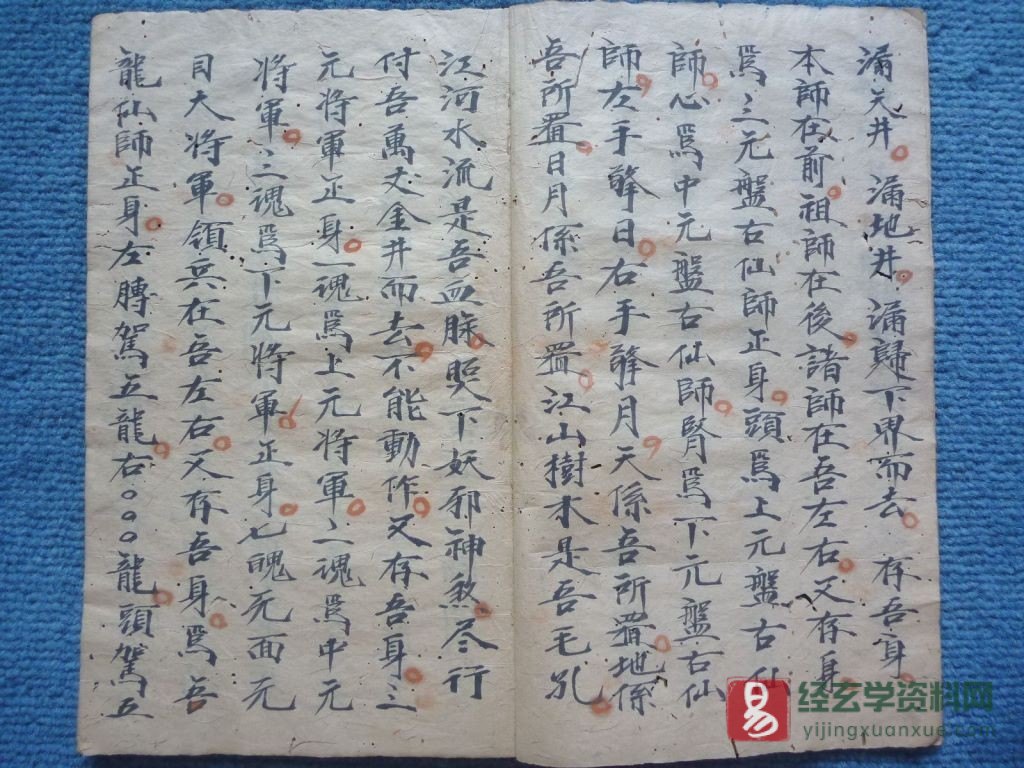 滿天井。滿地井。滿歸下界而去。存吾身。
本師在前。祖師在後。諸師在吾左右。又存身
爲三元盤古仙師正身。頭爲上元盤古仙
師。心爲中元盤古仙師。腎爲下元盤古仙
師。左手擎日。右手擎月。天係吾所置。地係
吾所置。日月係吾所置。江山樹木是吾毛孔
江河水流是吾血脉。照下妖邪神煞。尽行
付吾萬丈金井而去。不能動作。又存吾身三
元將軍正身。一魂爲上元將軍。二魂爲中元
將軍。三魂爲下元將軍正身。七魄 面元
目大將軍。領兵在吾左右。又存吾身。爲吾
龍仙師正身。左膊駕五龍。右。。。龍頭駕五
易
经玄学资料网
yijingxuanxue.com